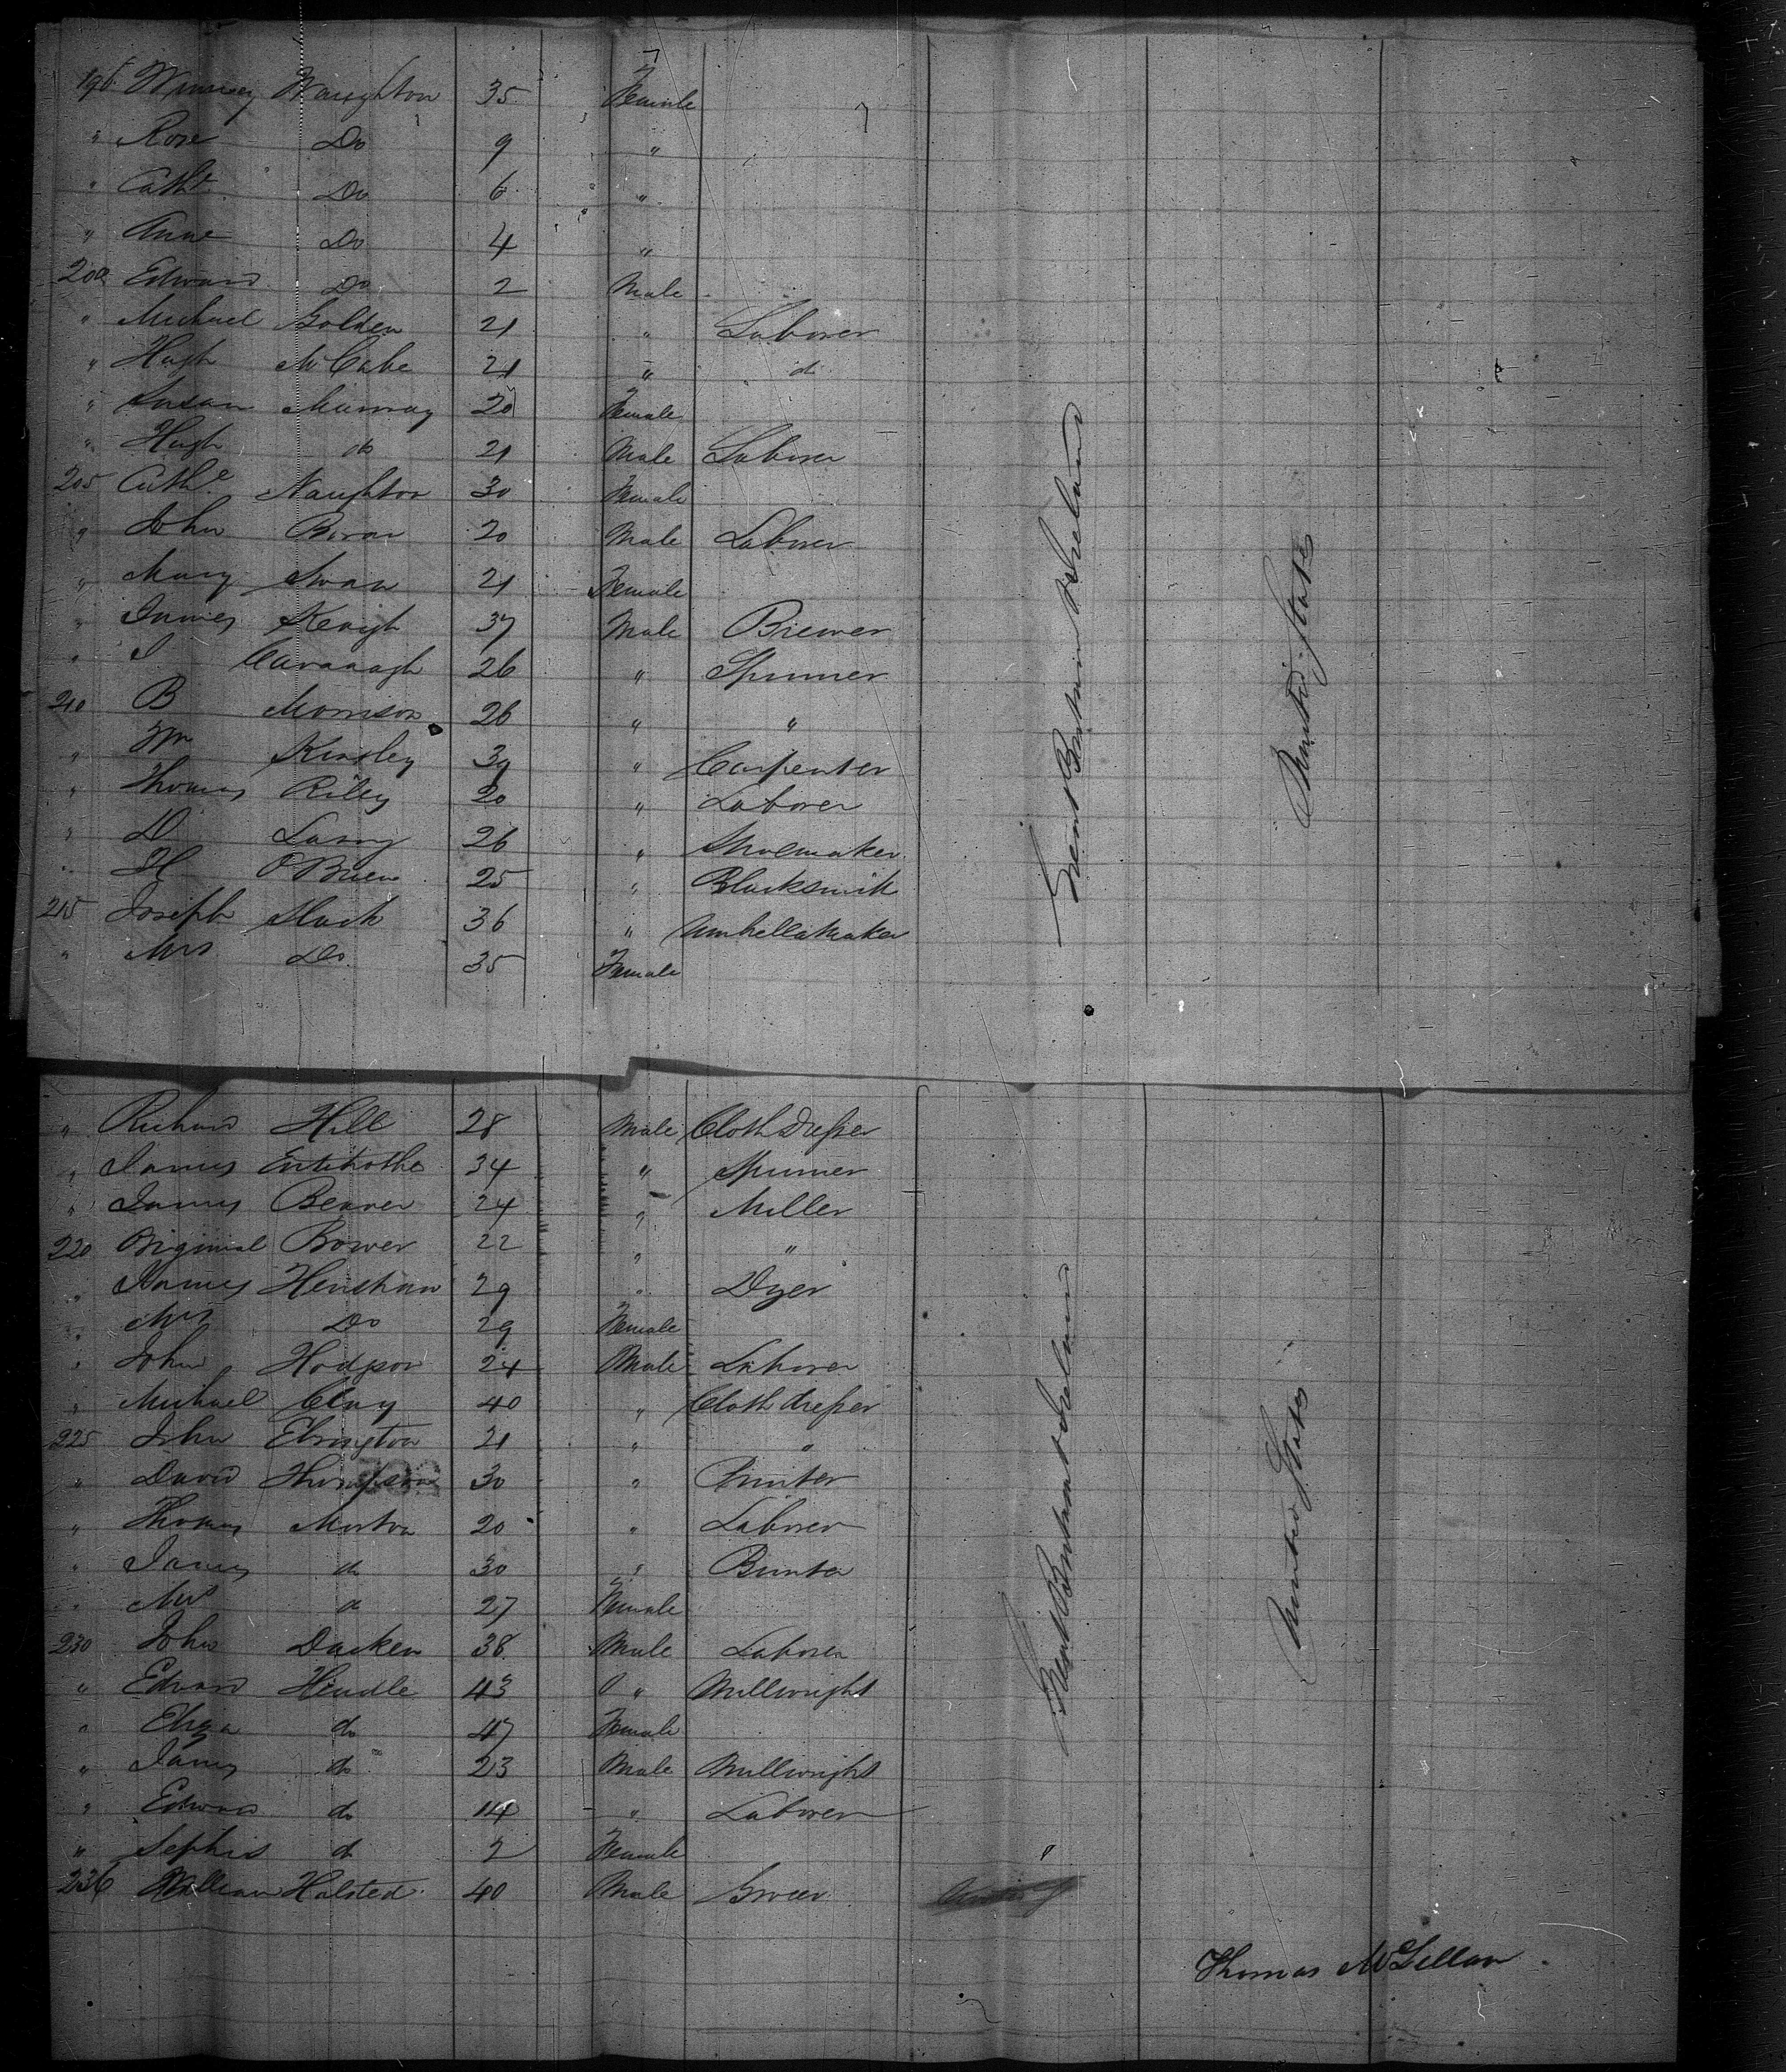 196 Winney Naughton 35 Female
" Rose Do 9 "
" Cathe Do 6 "
" Anne Do 4 "
200 Edward Do 2 Male
" Michael Golden 21 " Laborer
" Hugh McCabe 21 " do
" Susan Murray 20 Female
" Hugh do 21 Male Laborer
205 Cathe Naughton 30 Female
" John Boran 20 Male Laborer
" Mary Swan 21 Female
" James Keogh 37 Male Brewer
" J Cavanagh 26 " Spinner
210 B Morrison 26 " "
" Wm Kinsley 39 " Carpenter
" Thomas Riley 20 " Laborer
" D Lasny 26 " Shoemaker
" H O'Brien 25 " Blacksmith
215 Joseph Slack 36 " Umbrellamaker
" Mrs Do 35 Female
Great Britain & Ireland
United States
" Richard Hill 28 Male Cloth Dresser
" James Entitothe 34 " Spinner
" James Beaver 24 " Miller
220 Bower 22 " "
" James Henshaw 29 " Dyer
" Mrs Do 29 Female
" John Hodgson 24 Male Laborer
" Michael Clay 40 " Cloth dresser
225 John Elvington 21 " "
" David Thompson 30 " Printer
" Thomas Morton 20 " Laborer
" James do 30 "
" Mrs do 27 Female
230 John Dacken 38 Male Laborer
" Edward Hindle 43 " Millwright
" Eliza do 47 Female
" James do 23 Male Millwright
" Edward do 14 " Laborer
" Sephis do 2 Female "
236 William Halsted 40 Male Grocer
Great Britain & Ireland
United States
Thomas McLellan